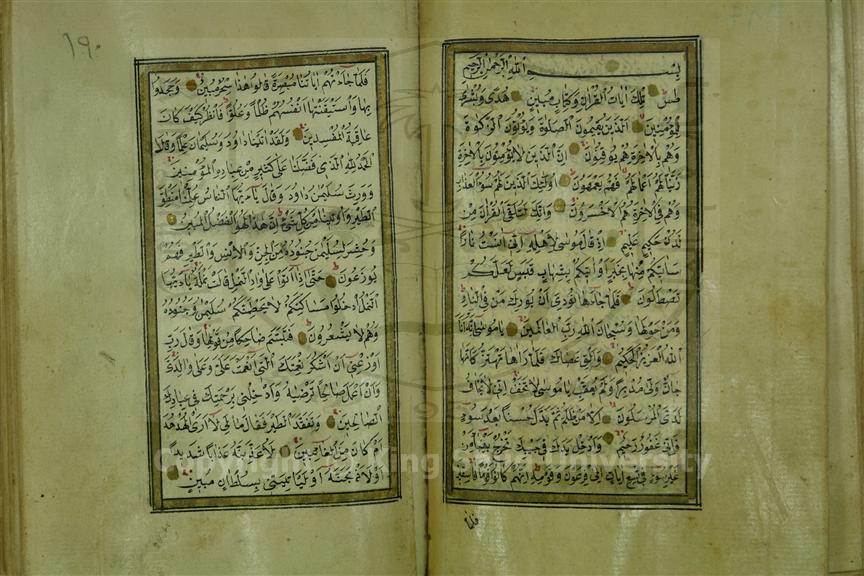 بسم الله الرحمن الرحيم
طس تلك ايات القران وكتاب مبين هدى وبشرى
للمؤمنين الذين يقيمون الصلوة ويؤتون الزكوة
وهم بالاخرة هم يوقنون ان الذين لا يؤمنون بالاخرة
زينا لهم اعمالهم فهم يعمهون اولئك الذين لهم سوء العذاب
وهم في الاخرة هم الاخسرون وانك لتلقى القران من
لدن حكيم عليم اذ قال موسى لاهله اني انست نارا
ساتيكم منها بخبر او اتيكم بشهاب قبس لعلكم
تصطلون فلما جاءها نودي ان بورك من في النار
ومن حولها وسبحان الله رب العالمين يا موسى انه انا
الله العزيز الحكيم والق عصاك فلما راها تهتز كانها
جان ولى مدبرا ولم يعقب يا موسى لا تخف اني لا يخاف
لدي المرسلون الا من ظلم ثم بدل حسنا بعد سوء
فاني غفور رحيم وادخل يدك في جيبك تخرج بيضاء من
غير سوء في تسع ايات الى فرعون وقومه انهم كانوا قوما فاسقين
فلما
١٩٠
فلما جاءتهم اياتنا مبصرة قالوا هذا سحر مبين وجحدوا
بها واستيقنتها انفسهم ظلما وعلوا فانظر كيف كان
عاقبة المفسدين ولقد اتينا داود وسليمان علما وقالا
الحمد لله الذي فضلنا على كثير من عباده المؤمنين
وورث سليمن داود وقال يا ايها الناس علمنا منطق
الطير واوتينا من كل شيء ان هذا لهو الفضل المبين
وحشر لسليمن جنوده من الجن والانس والطير فهم
يوزعون حتى اذا اتوا على واد النمل قالت نملة يا ايها
النمل ادخلوا مساكنكم لا يحطمنكم سليمن وجنوده
وهم لا يشعرون فتبسم ضاحكا من قولها وقال رب
اوزعني ان اشكر نعمتك التي انعمت علي وعلى والدي
وان اعمل صالحا ترضيه وادخلني برحمتك في عبادك
الصالحين وتفقد الطير فقال ما لي لا ارى الهدهد
ام كان من الغائبين لاعذبنه عذابا شديدا
او لاذبحنه او لياتيني بسلطان مبين